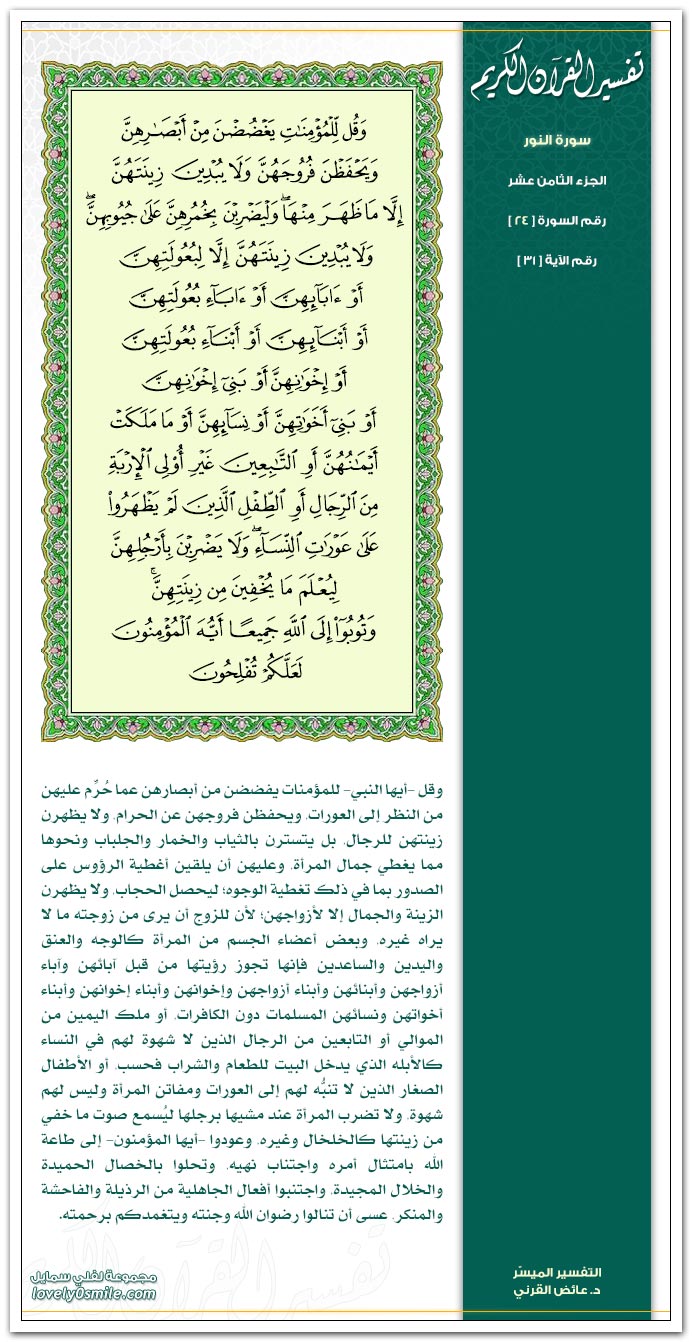 تفسير القرآن الكريم
سورة النور
الجزء الثامن عشر
رقم السورة [ ٢٤ ]
رقم الآية [ ٣١ ]
وَقُل لِّلْمُؤْمِنَٰتِ يَغْضُضْنَ مِنْ أَبْصَٰرِهِنَّ
وَيَحْفَظْنَ فُرُوجَهُنَّ وَلَا يُبْدِينَ زِينَتَهُنَّ
إِلَّا مَا ظَهَرَ مِنْهَا ۖ وَلْيَضْرِبْنَ بِخُمُرِهِنَّ عَلَىٰ جُيُوبِهِنَّ ۖ
وَلَا يُبْدِينَ زِينَتَهُنَّ إِلَّا لِبُعُولَتِهِنَّ
أَوْ ءَابَآئِهِنَّ أَوْ ءَابَآءِ بُعُولَتِهِنَّ
أَوْ أَبْنَآئِهِنَّ أَوْ أَبْنَآءِ بُعُولَتِهِنَّ
أَوْ إِخْوَٰنِهِنَّ أَوْ بَنِىٓ إِخْوَٰنِهِنَّ
أَوْ بَنِىٓ أَخَوَٰتِهِنَّ أَوْ نِسَآئِهِنَّ أَوْ مَا مَلَكَتْ
أَيْمَٰنُهُنَّ أَوِ ٱلتَّٰبِعِينَ غَيْرِ أُو۟لِى ٱلْإِرْبَةِ
مِنَ ٱلرِّجَالِ أَوِ ٱلطِّفْلِ ٱلَّذِينَ لَمْ يَظْهَرُوا۟
عَلَىٰ عَوْرَٰتِ ٱلنِّسَآءِ ۖ وَلَا يَضْرِبْنَ بِأَرْجُلِهِنَّ
لِيُعْلَمَ مَا يُخْفِينَ مِن زِينَتِهِنَّ ۚ
وَتُوبُوٓا۟ إِلَى ٱللَّهِ جَمِيعًا أَيُّهَ ٱلْمُؤْمِنُونَ
لَعَلَّكُمْ تُفْلِحُونَ
وقل -أيها النبي- للمؤمنات يغضضن من أبصارهن عما حُرِّم عليهن
من النظر إلى العورات، ويحفظن فروجهن عن الحرام، ولا يظهرن
زينتهن للرجال، بل يتسترن بالثياب والخمار والجلباب ونحوها
مما يغطي جمال المرأة، وعليهن أن يلقين أغطية الرؤوس على
الصدور بما في ذلك تغطية الوجوه؛ ليحصل الحجاب، ولا يظهرن
الزينة والجمال إلا لأزواجهن؛ لأن للزوج أن يرى من زوجته ما لا
يراه غيره، وبعض أعضاء الجسم من المرأة كالوجه والعنق
واليدين والساعدين فإنها تجوز رؤيتها من قبل آبائهن وآباء
أزواجهن وأبنائهن وأبناء أزواجهن وإخوانهن وأبناء إخوانهن وأبناء
أخواتهن ونسائهن المسلمات دون الكافرات، أو ملك اليمين من
الموالي أو التابعين من الرجال الذين لا شهوة لهم في النساء
كالأبله الذي يدخل البيت للطعام والشراب فحسب، أو الأطفال
الصغار الذين لا تنبُّه لهم إلى العورات ومفاتن المرأة وليس لهم
شهوة، ولا تضرب المرأة عند مشيها برجلها ليُسمع صوت ما خفي
من زينتها كالخلخال وغيره، وعودوا -أيها المؤمنون- إلى طاعة
الله بامتثال أمره واجتناب نهيه، وتحلوا بالخصال الحميدة
والخلال المجيدة، واجتنبوا أفعال الجاهلية من الرذيلة والفاحشة
والمنكر، عسى أن تنالوا رضوان الله وجنته ويتغمدكم برحمته.
التفسير الميسّر
د. عائض القرني
مجموعة لفلي سمايل
lovely0smile.com